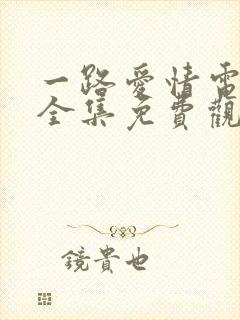 一路愛情電
全集免費觀
鏡貴也